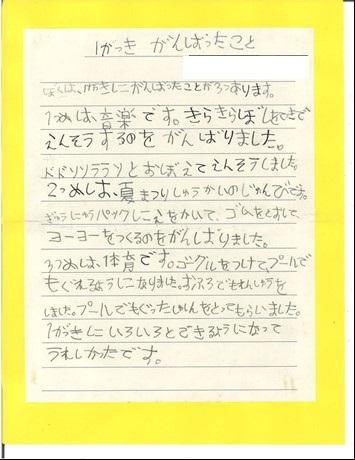 1がっき がんばったこと
ぼくは、1がっきにがんばったことが3つあります。
1つめは、音楽です。きらきらぼしをきでで
えんそうするのをがんばりました。
ドドソソララソとおぼえてえんそうしました。
2つめは、夏まつりしゅうかいのじゅんびです。
ぎゅうにゅうパックにえをかいて、ゴムをとおして、
ヨーヨーをつくるのをがんばりました。
3つめは、体育です。ゴーグルをつけて、プールで
もぐれるようになりました。おふろでもれんしゅうを
しました。プールでもぐったしゃしんをとってもらいました。
1がっきにいろいろとできるようになって
うれしかったです。